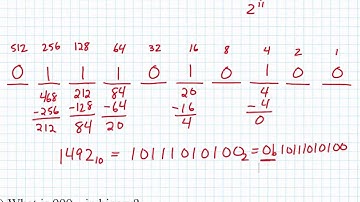 2¹¹
512 256 128 64 32 16 8 4 2 1
0 1 1 1 0 1 0 1 0 0
468 212 84 20 4
-256 -128 -64 -16 -4
212 84 20 4 0
1492₁₀ = 10111010100₂ = 0b10111010100